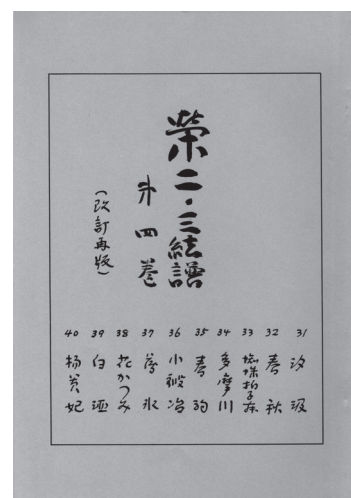 榮二・三絃譜
第四巻
(改訂再版)
31 汐汲
32 春秋
33 蜘蛛拍子舞
34 多摩川
35 春駒
36 小鍛冶
37 薄氷
38 花かつみ
39 白酒
40 楊貴妃